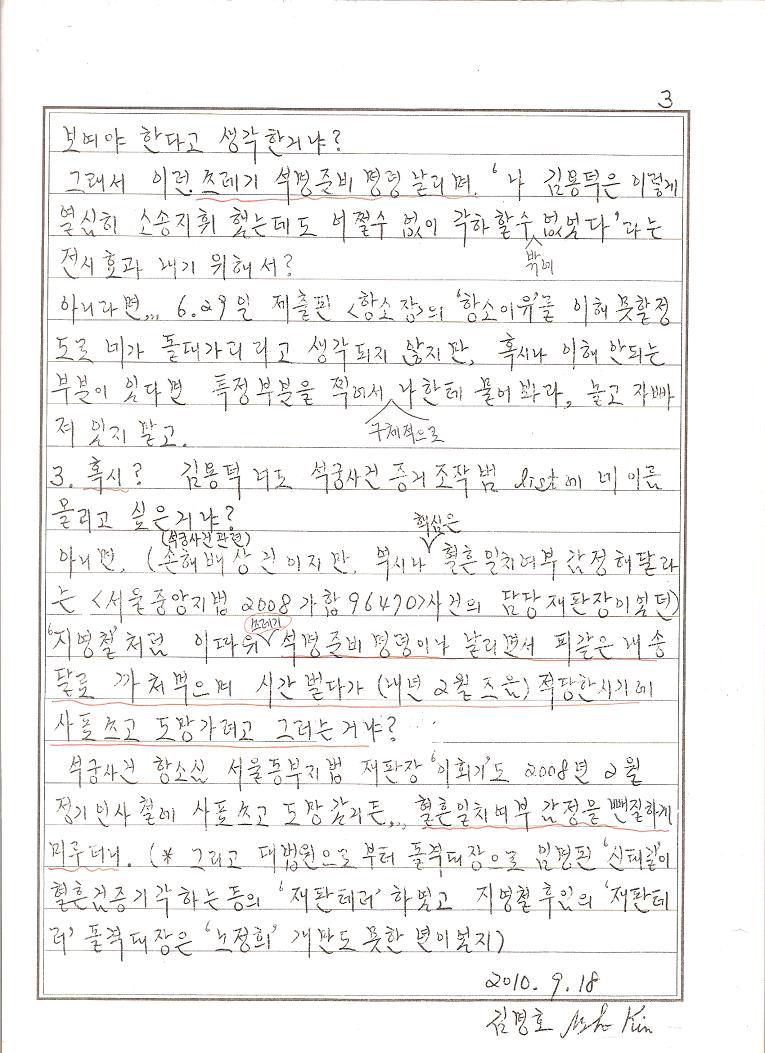 3
보여야 한다고 생각한거냐?
그래서 이런 쓰레기 석명준비명령 날리며, '나 김용덕은 이렇게
열심히 소송지휘 했는데도 어쩔수 없이 각하 할수 없었다'라는
밖에
전시 효과 내기 위해서?
아니라면,,, 6.29일 제출된 <항소장>의 '항소이유'를 이해 못할정
도로 네가 돌대가리라고 생각되지 않지만, 혹시나 이해 안되는
부분이 있다면 특정부분을 찍어서 나한테 물어 봐라, 놀고 자빠
구체적으로
져 있지 말고.
3. 혹시? 김용덕 너도 석궁사건 증거조작범 list에 네 이름
올리고 싶은거냐?
(석궁사건 관련) 핵심은
아니면, (손해배상건이지만, 역시나 혈흔일치여부 감정해달라
는 <서울중앙지법 2008가합96470>사건의 담당재판장이었던)
쓰레기
'지영철'처럼 이따위 석명준비명령이나 날리면서 피같은 내 송
달료 까쳐먹으며 시간 벌다가 (내년 2월 즈음) 적당한시기에
사표쓰고 도망가려고 그러는거냐?
석궁사건 항소심 서울동부지법 재판장 '이회기'도 2008년 2월
정기인사 철에 사표쓰고 도망갔거든,,, 혈흔일치여부 감정을 뺀질하게
미루더니. (* 그리고 대법원으로부터 돌격대장으로 임명된 '신태길'이
혈흔검증기각하는등의 '재판테러' 하였고 지영철 후임의 '재판테
러' 돌격대장은 '노정희' 개만도 못한 년이었지)
2010. 9. 18
김명호 Kim